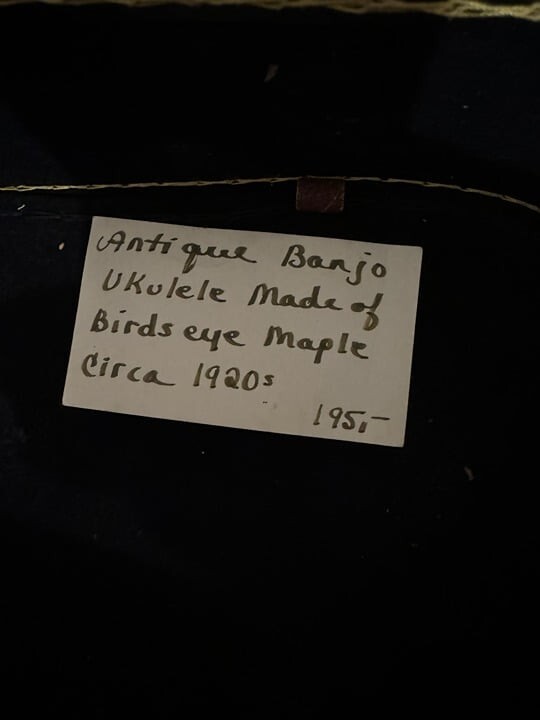 Antique Banjo
UKulele Made of
Birds eye Maple
Circa 1920s
195,-